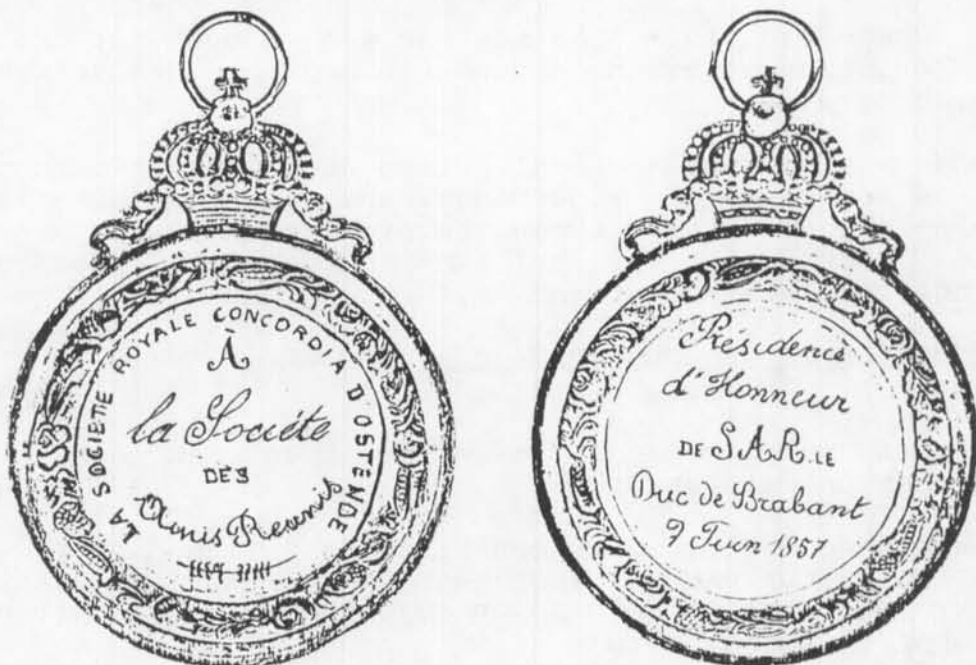 LA SOCIETE ROYALE CONCORDIA D'OSTENDE
À
la Société
DES
Amis Reunis
Présidence
d'Honneur
DE S.A.R. LE
Duc de Brabant
9 Juin 1857